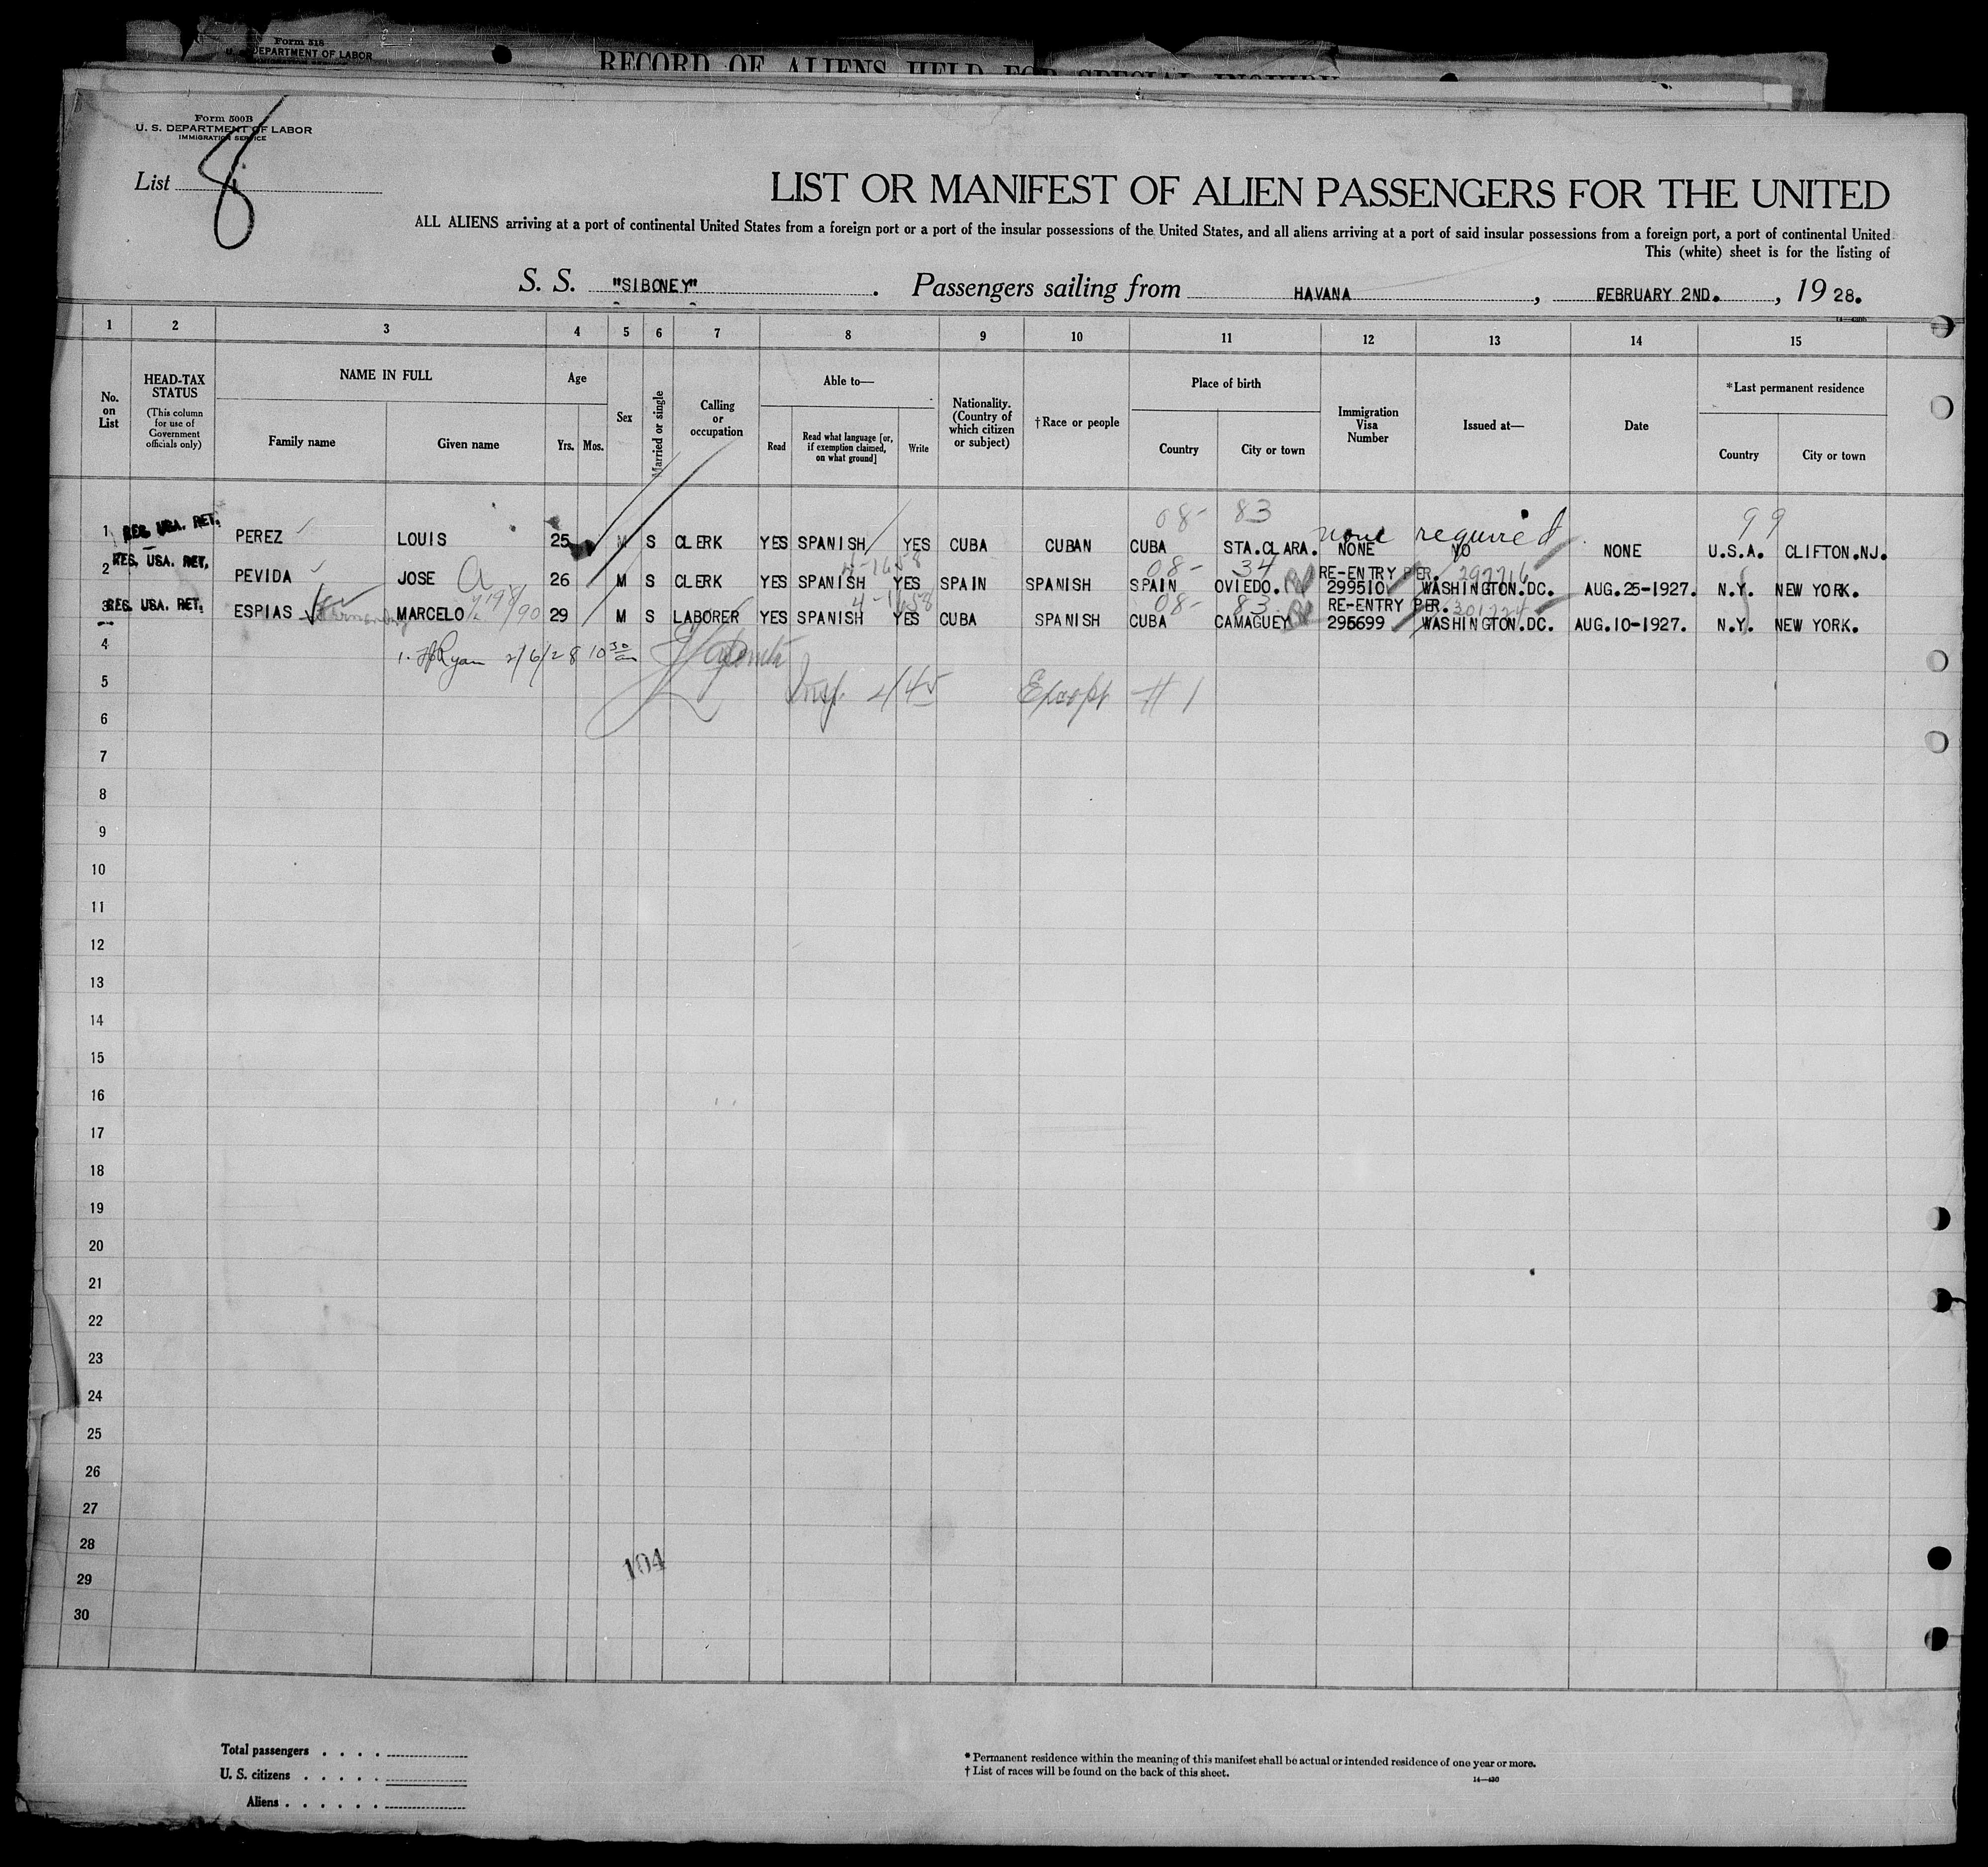 Form 518
U. S. DEPARTMENT OF LABOR
RECORD OF ALIENS HELD FOR SPECIAL INQUIRY
Form 500B
U. S. DEPARTMENT OF LABOR
IMMIGRATION SERVICE
List 8
LIST OR MANIFEST OF ALIEN PASSENGERS FOR THE UNITED
ALL ALIENS arriving at a port of continental United States from a foreign port or a port of the insular possessions of the United States, and all aliens arriving at a port of said insular possessions from a foreign port, a port of continental United
This (white) sheet is for the listing of
S. S. "SIBONEY". Passengers sailing from HAVANA, FEBRUARY 2ND., 1928.
1 2 3 4 5 6 7 8 9 10 11 12 13 14 15
No. on List
HEAD-TAX STATUS (This column for use of Government officials only)
NAME IN FULL Family name Given name
Age Yrs. Mos.
Sex
Married or single
Calling or occupation
Able to— Read Read what language [or, if exemption claimed, on what ground] Write
Nationality. (Country of which citizen or subject)
†Race or people
Place of birth Country City or town
Immigration Visa Number
Issued at—
Date
*Last permanent residence Country City or town
08- 83 none required 99
1 RES. USA. RET. PEREZ LOUIS 25 M S CLERK YES SPANISH YES CUBA CUBAN CUBA STA.CLARA. NONE NO NONE U.S.A. CLIFTON.NJ.
4-1658 08- 34 RE-ENTRY PER. 297716
2 RES. USA. RET. PEVIDA JOSE a 26 M S CLERK YES SPANISH YES SPAIN SPANISH SPAIN OVIEDO. 299510 WASHINGTON.DC. AUG.25-1927. N.Y. NEW YORK.
4-1658 08- 83 RE-ENTRY PER. 301224
3 RES. USA. RET. ESPIAS MARCELO 29 M S LABORER YES SPANISH YES CUBA SPANISH CUBA CAMAGUEY 295699 WASHINGTON.DC. AUG.10-1927. N.Y. NEW YORK.
4 1. Ryan 2/6/28 10 30 am
5 Insp. 2/45 Except # 1
6
7
8
9
10
11
12
13
14
15
16
17
18
19
20
21
22
23
24
25
26
27
28
104
29
30
Total passengers . . . .
U. S. citizens . . . . .
Aliens . . . . . .
* Permanent residence within the meaning of this manifest shall be actual or intended residence of one year or more.
† List of races will be found on the back of this sheet.
14—430